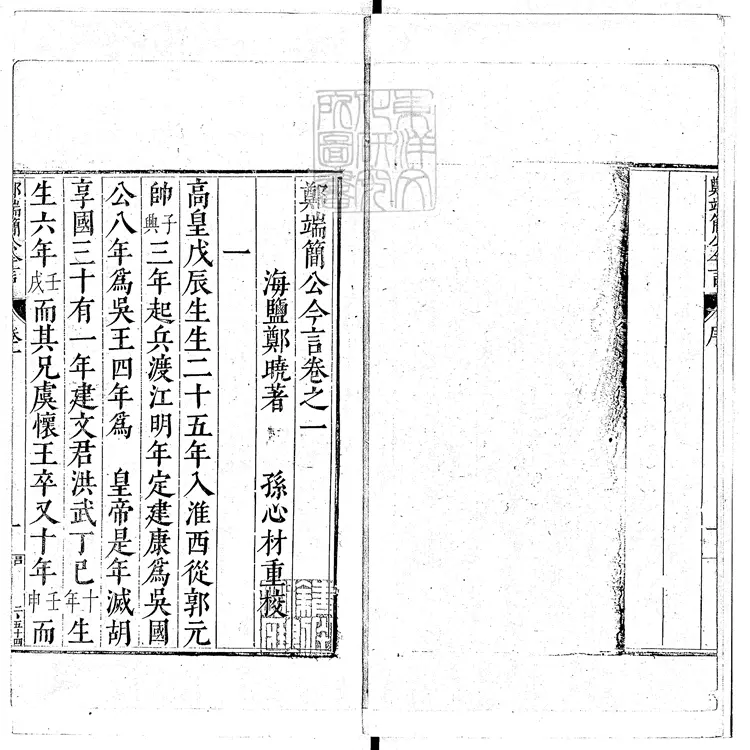 鄭端簡公今言
序
鄭端簡公今言卷之一
海鹽鄭曉著 孫心材重校
一
高皇戊辰生生二十五年入淮西從郭元
帥子興三年起兵渡江明年定建康爲吳國
公八年爲吳王四年爲 皇帝是年滅胡
享國三十有一年建文君洪武丁巳十年生
生六年壬戌而其兄虞懷王卒又十年壬申而
鄭端簡公今言 卷一
一